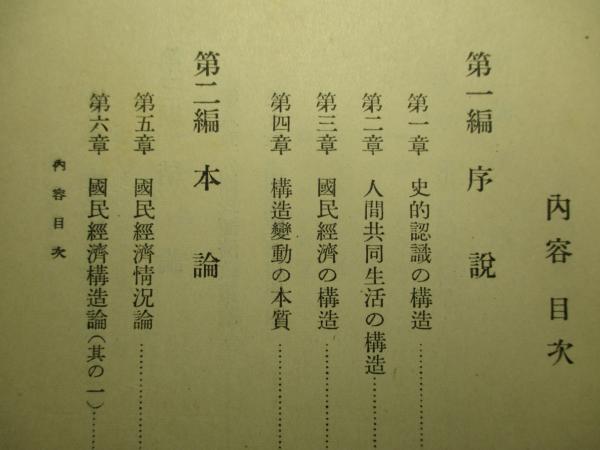 內容目次
第一編 序說
第一章 史的認識の構造…………
第二章 人間共同生活の構造…………
第三章 國民經濟の構造…………
第四章 構造變動の本質…………
第二編 本論
第五章 國民經濟情況論…………
第六章 國民經濟構造論(其の一)…………
內容目次